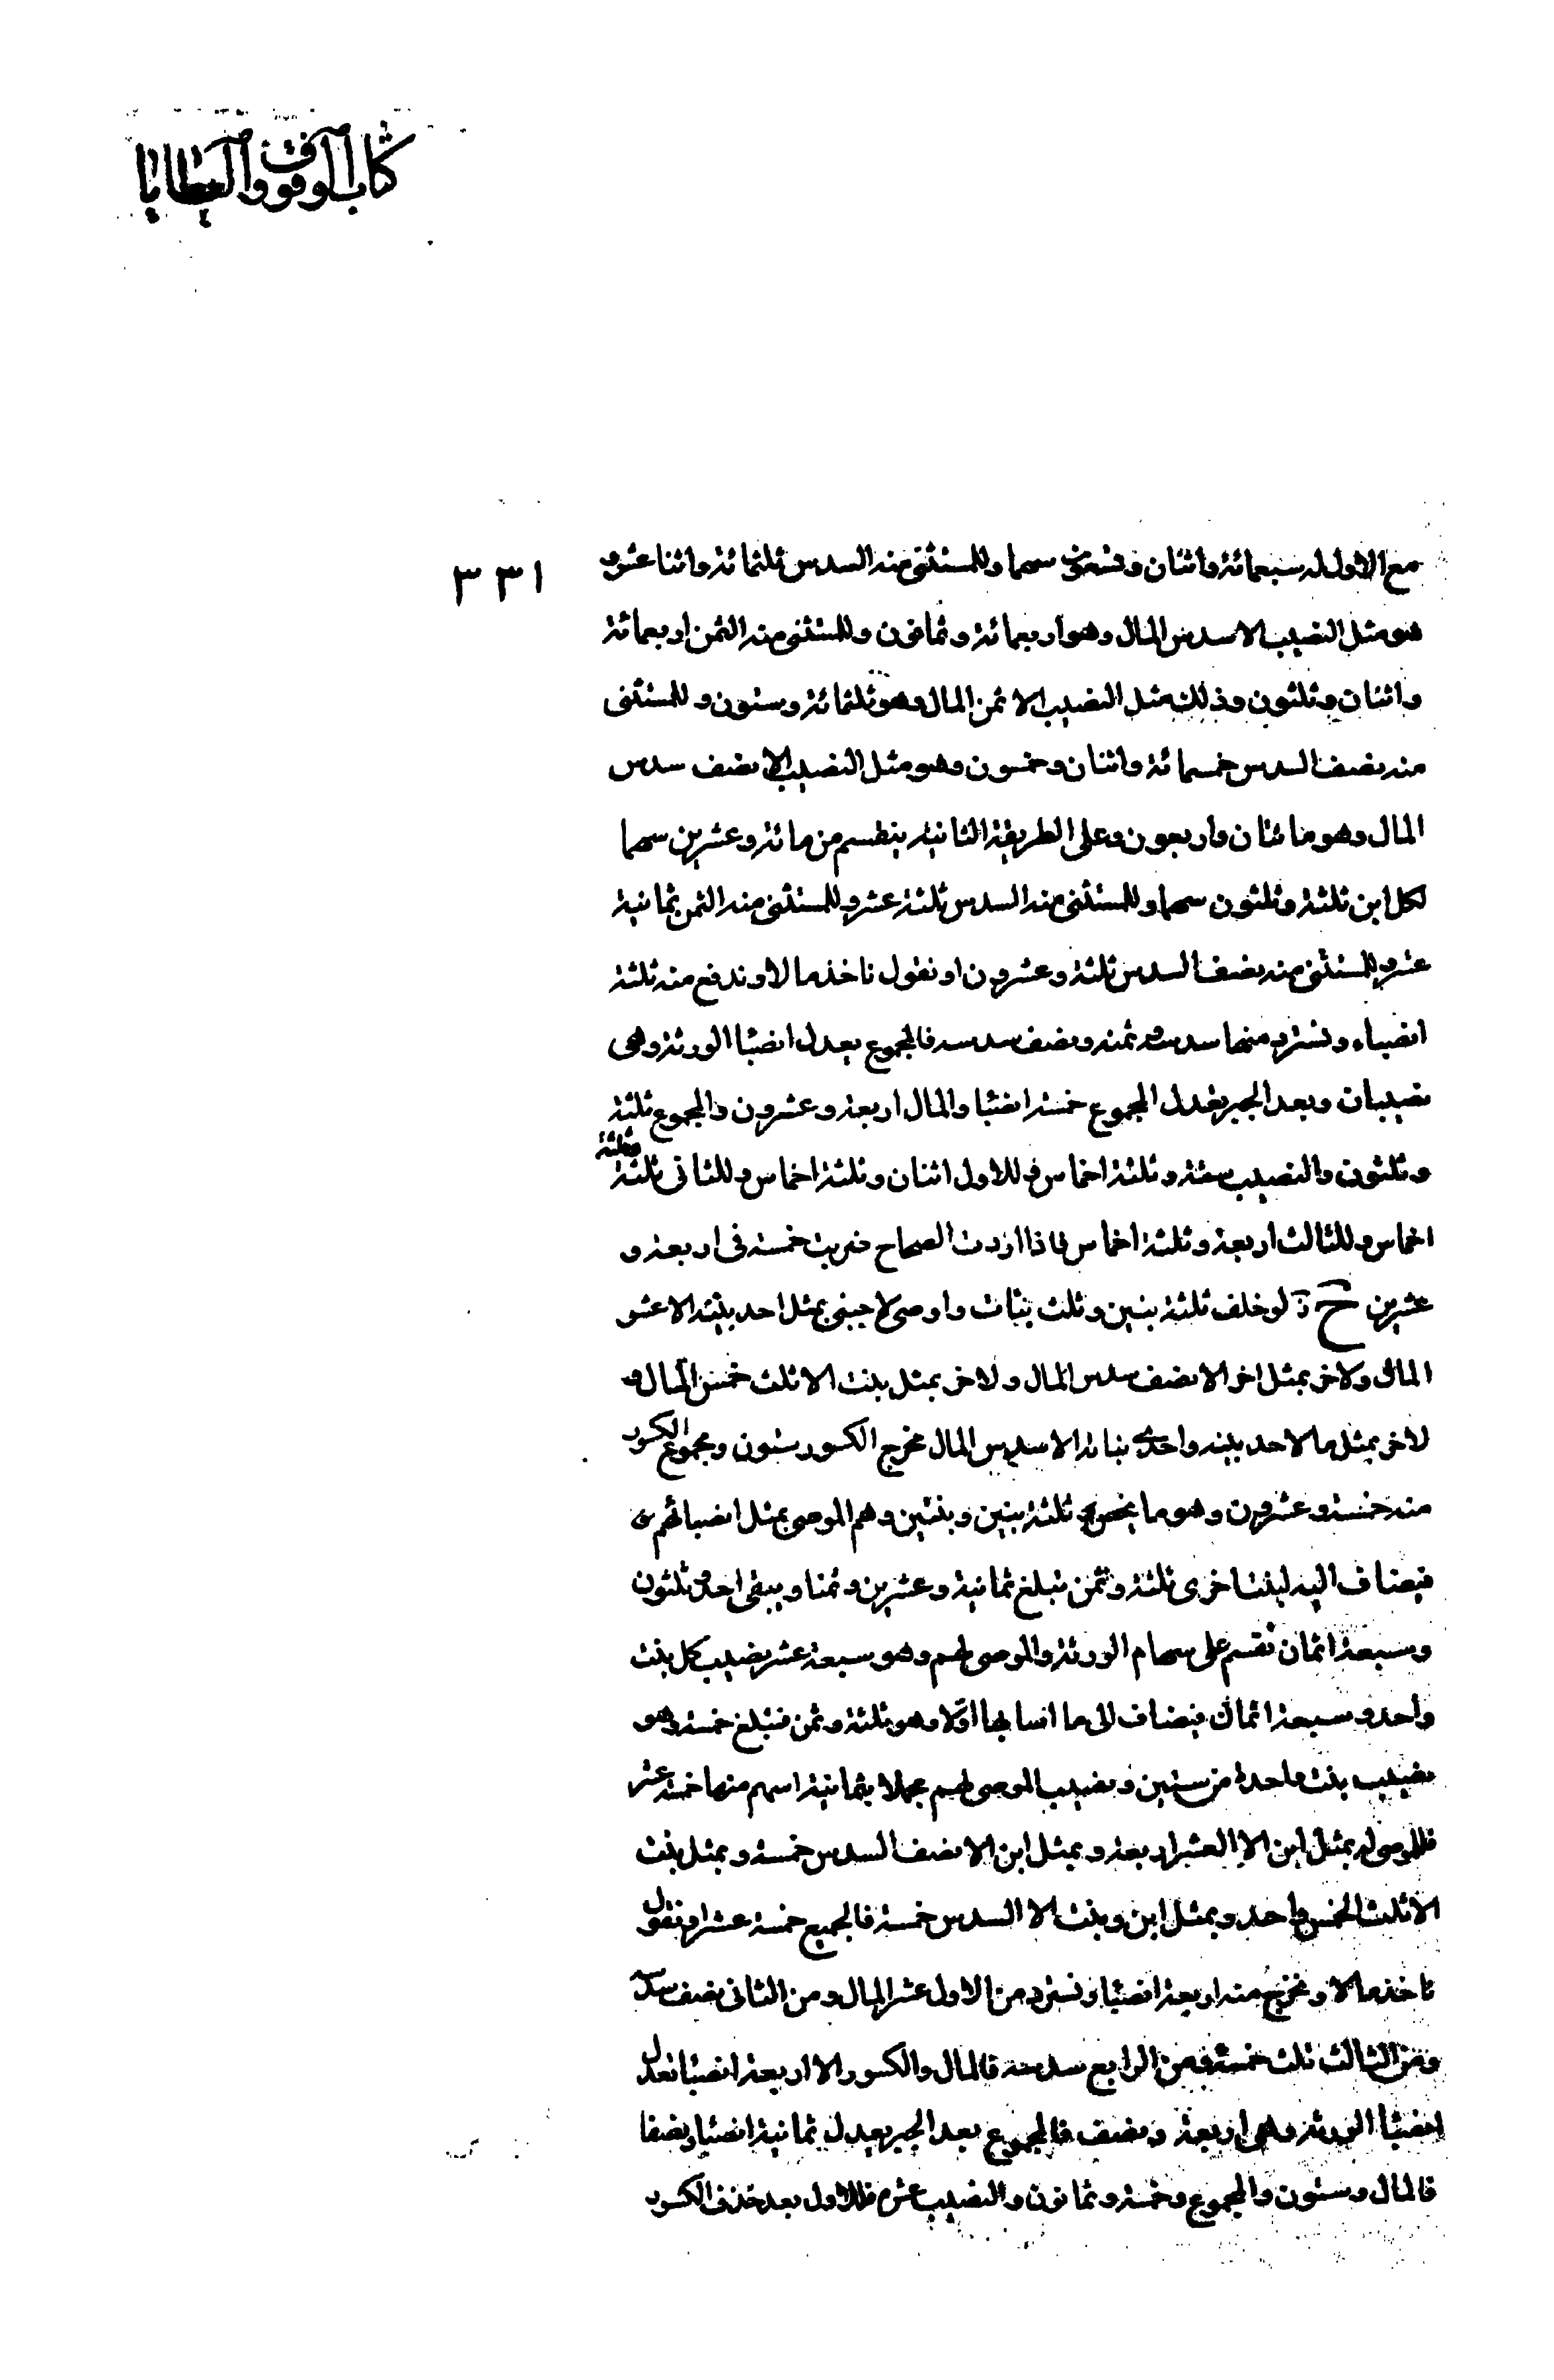 كتاب الوقوف والعطايا
٣٣١
مع الاول له سبعمائة واثنان وتسعون سهما وللمستثنى منه السدس ثلثمائة واثنا عشر و
هو مثل النصيب الا سدس المال وهو اربعمائة وثمانون وللمستثنى منه الثمن اربعمائة
واثنان وثلثون وذلك مثل النصيب الا ثمن المال وهو ثلثمائة وستون وللمستثنى
منه نصف السدس خمسمائة واثنان وخمسون وهو مثل النصيب الا نصف سدس
المال وهو مائتان واربعون وعلى الطريقة الثانية ينقسم من مائة وعشرين سهما
لكل ابن ثلثة وثلثون سهما وللمستثنى منه السدس ثلثة عشر وللمستثنى منه الثمن ثمانية
عشر وللمستثنى منه نصف السدس ثلثة وعشرون او نقول ناخذ مالا وندفع منه ثلثة
انصباء ونسترد منها سدسه وثمنه ونصف سدسه فالمجموع يعدل انصبا الورثة وهى
نصيبان وبعد الجبر يعدل المجموع خمسة انصبا والمال اربعة وعشرون والمجموع ثلثة
وثلثون والنصيب ستة وثلثة اخماس وللاول اثنان وثلثة اخماس وللثانى ثلثة وثلثة
اخماس وللثالث اربعة وثلثة اخماس فاذا اردت الصحاح ضربت خمسة فى اربعة و
عشرين ح لو خلف ثلثة بنين وثلث بنات واوصى لاجنبى بمثل احد بنيه الا عشر
المال ولاخر بمثل اخر الا نصف سدس المال ولاخر بمثل بنت الا ثلث خمس المال و
لاخر بمثل ما لاحد بنيه واحدى بناته الا سدس المال مخرج الكسور ستون ومجموع الكسور
منه خمسة وعشرون وهو ما يخص ثلثة بنين وبنتين وهم الموصى بمثل انصبائهم
فيضاف اليه لبنت اخرى ثلثة وثمن تبلغ ثمانية وعشرين وثمنا ويبقى احد وثلثون
وسبعة اثمان تقسم على سهام الورثة والموصى لهم وهو سبعة عشر نصيب كل بنت
واحد وسبعة اثمان فيضاف الى ما اصابها اولا وهو ثلثة وثمن فتبلغ خمسة وهو
نصيب بنت واحدة من ستين ونصيب الموصى لهم مجملا بثمانية اسهم منها خمسة عشر
فللموصى له بمثل ابن الا العشر اربعة وبمثل ابن الا نصف السدس خمسة وبمثل بنت
الا ثلث الخمس واحد وبمثل ابن وبنت الا السدس خمسة فالجميع خمسة عشر او نقول
ناخذ مالا ونخرج منه اربعة انصبا ونسترد من الاول عشر المال ومن الثانى نصف سدسه
ومن الثالث ثلث خمسه ومن الرابع سدسه فالمال والكسور الا اربعة انصبا تعدل
انصبا الورثة وهى اربعة ونصف فالمجموع بعد الجبر يعدل ثمانية انصباء ونصفا
فالمال وستون والمجموع وخمسة وثمانون والنصيب عشرة فللاول بعد حذف الكسور